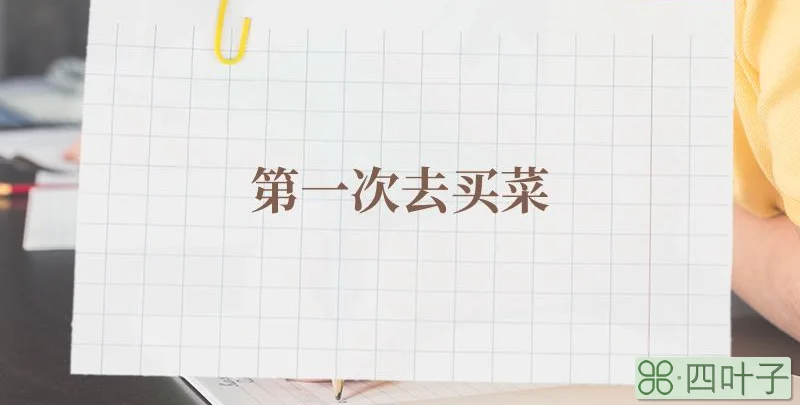 第一次去买菜
四叶子